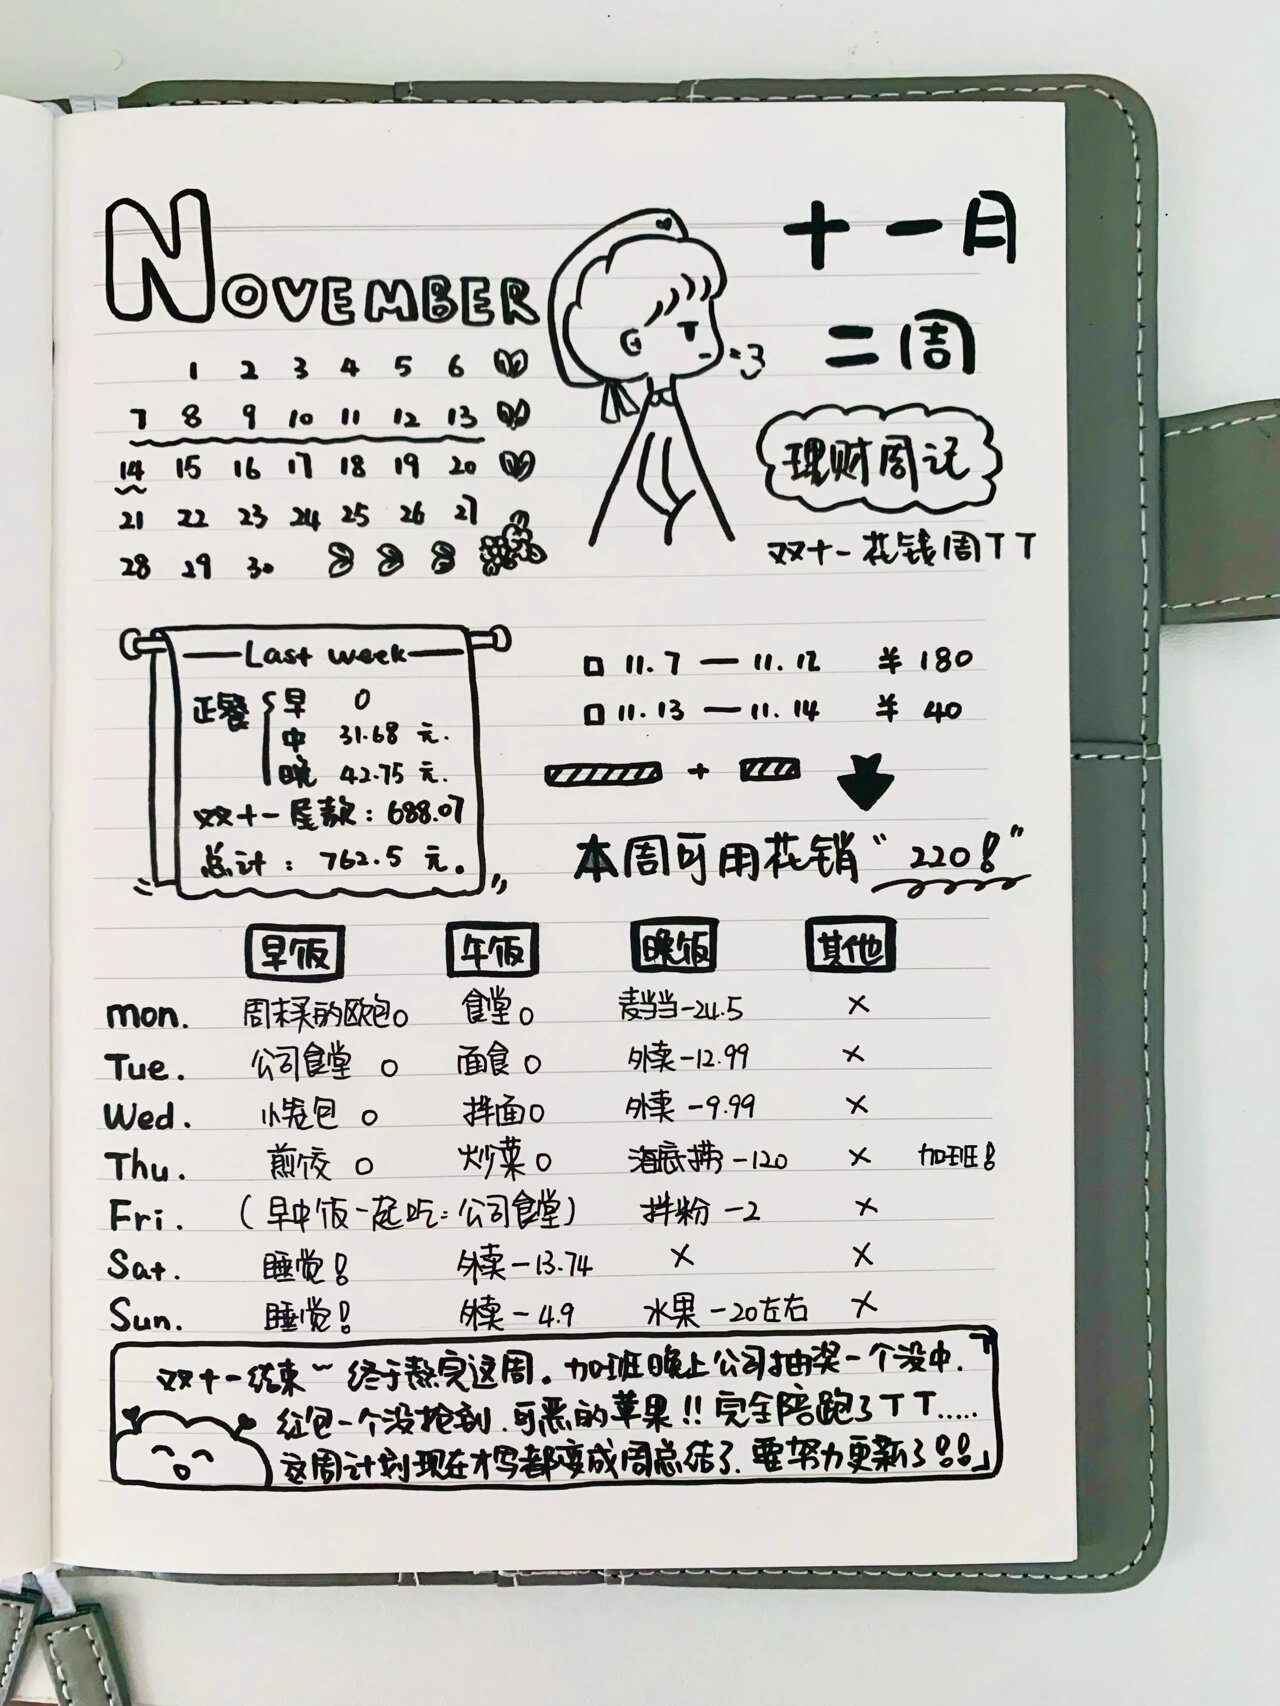 NOVEMBER
十一月
二周
1 2 3 4 5 6
7 8 9 10 11 12 13
14 15 16 17 18 19 20
21 22 23 24 25 26 27
28 29 30
理财周记
双十一花钱周TT
Last week
正餐 早 0
中 31.68 元.
晚 42.75 元.
双十一尾款：688.07
总计：762.5 元。
11.7 — 11.12 ¥180
11.13 — 11.14 ¥40
+
本周可用花销“220!”
早饭 午饭 晚饭 其他
mon. 周末买的欧包0 食堂0 麦当当-24.5 ×
Tue. 公司食堂 0 面食0 外卖-12.99 ×
Wed. 小笼包 0 拌面0 外卖-9.99 ×
Thu. 煎饺 0 炒菜0 海底捞-120 × 加班!
Fri. (早中饭一起吃：公司食堂) 拌粉-2 ×
Sat. 睡觉! 外卖-13.74 × ×
Sun. 睡觉! 外卖-4.9 水果-20左右 ×
双十一结束~终于熬完这周。加班晚上公司抽奖一个没中.
红包一个没抢到.可恶的苹果!!完全陪跑了TT.....
这周计划现在才写都变成周总结了.要努力更新了!!」